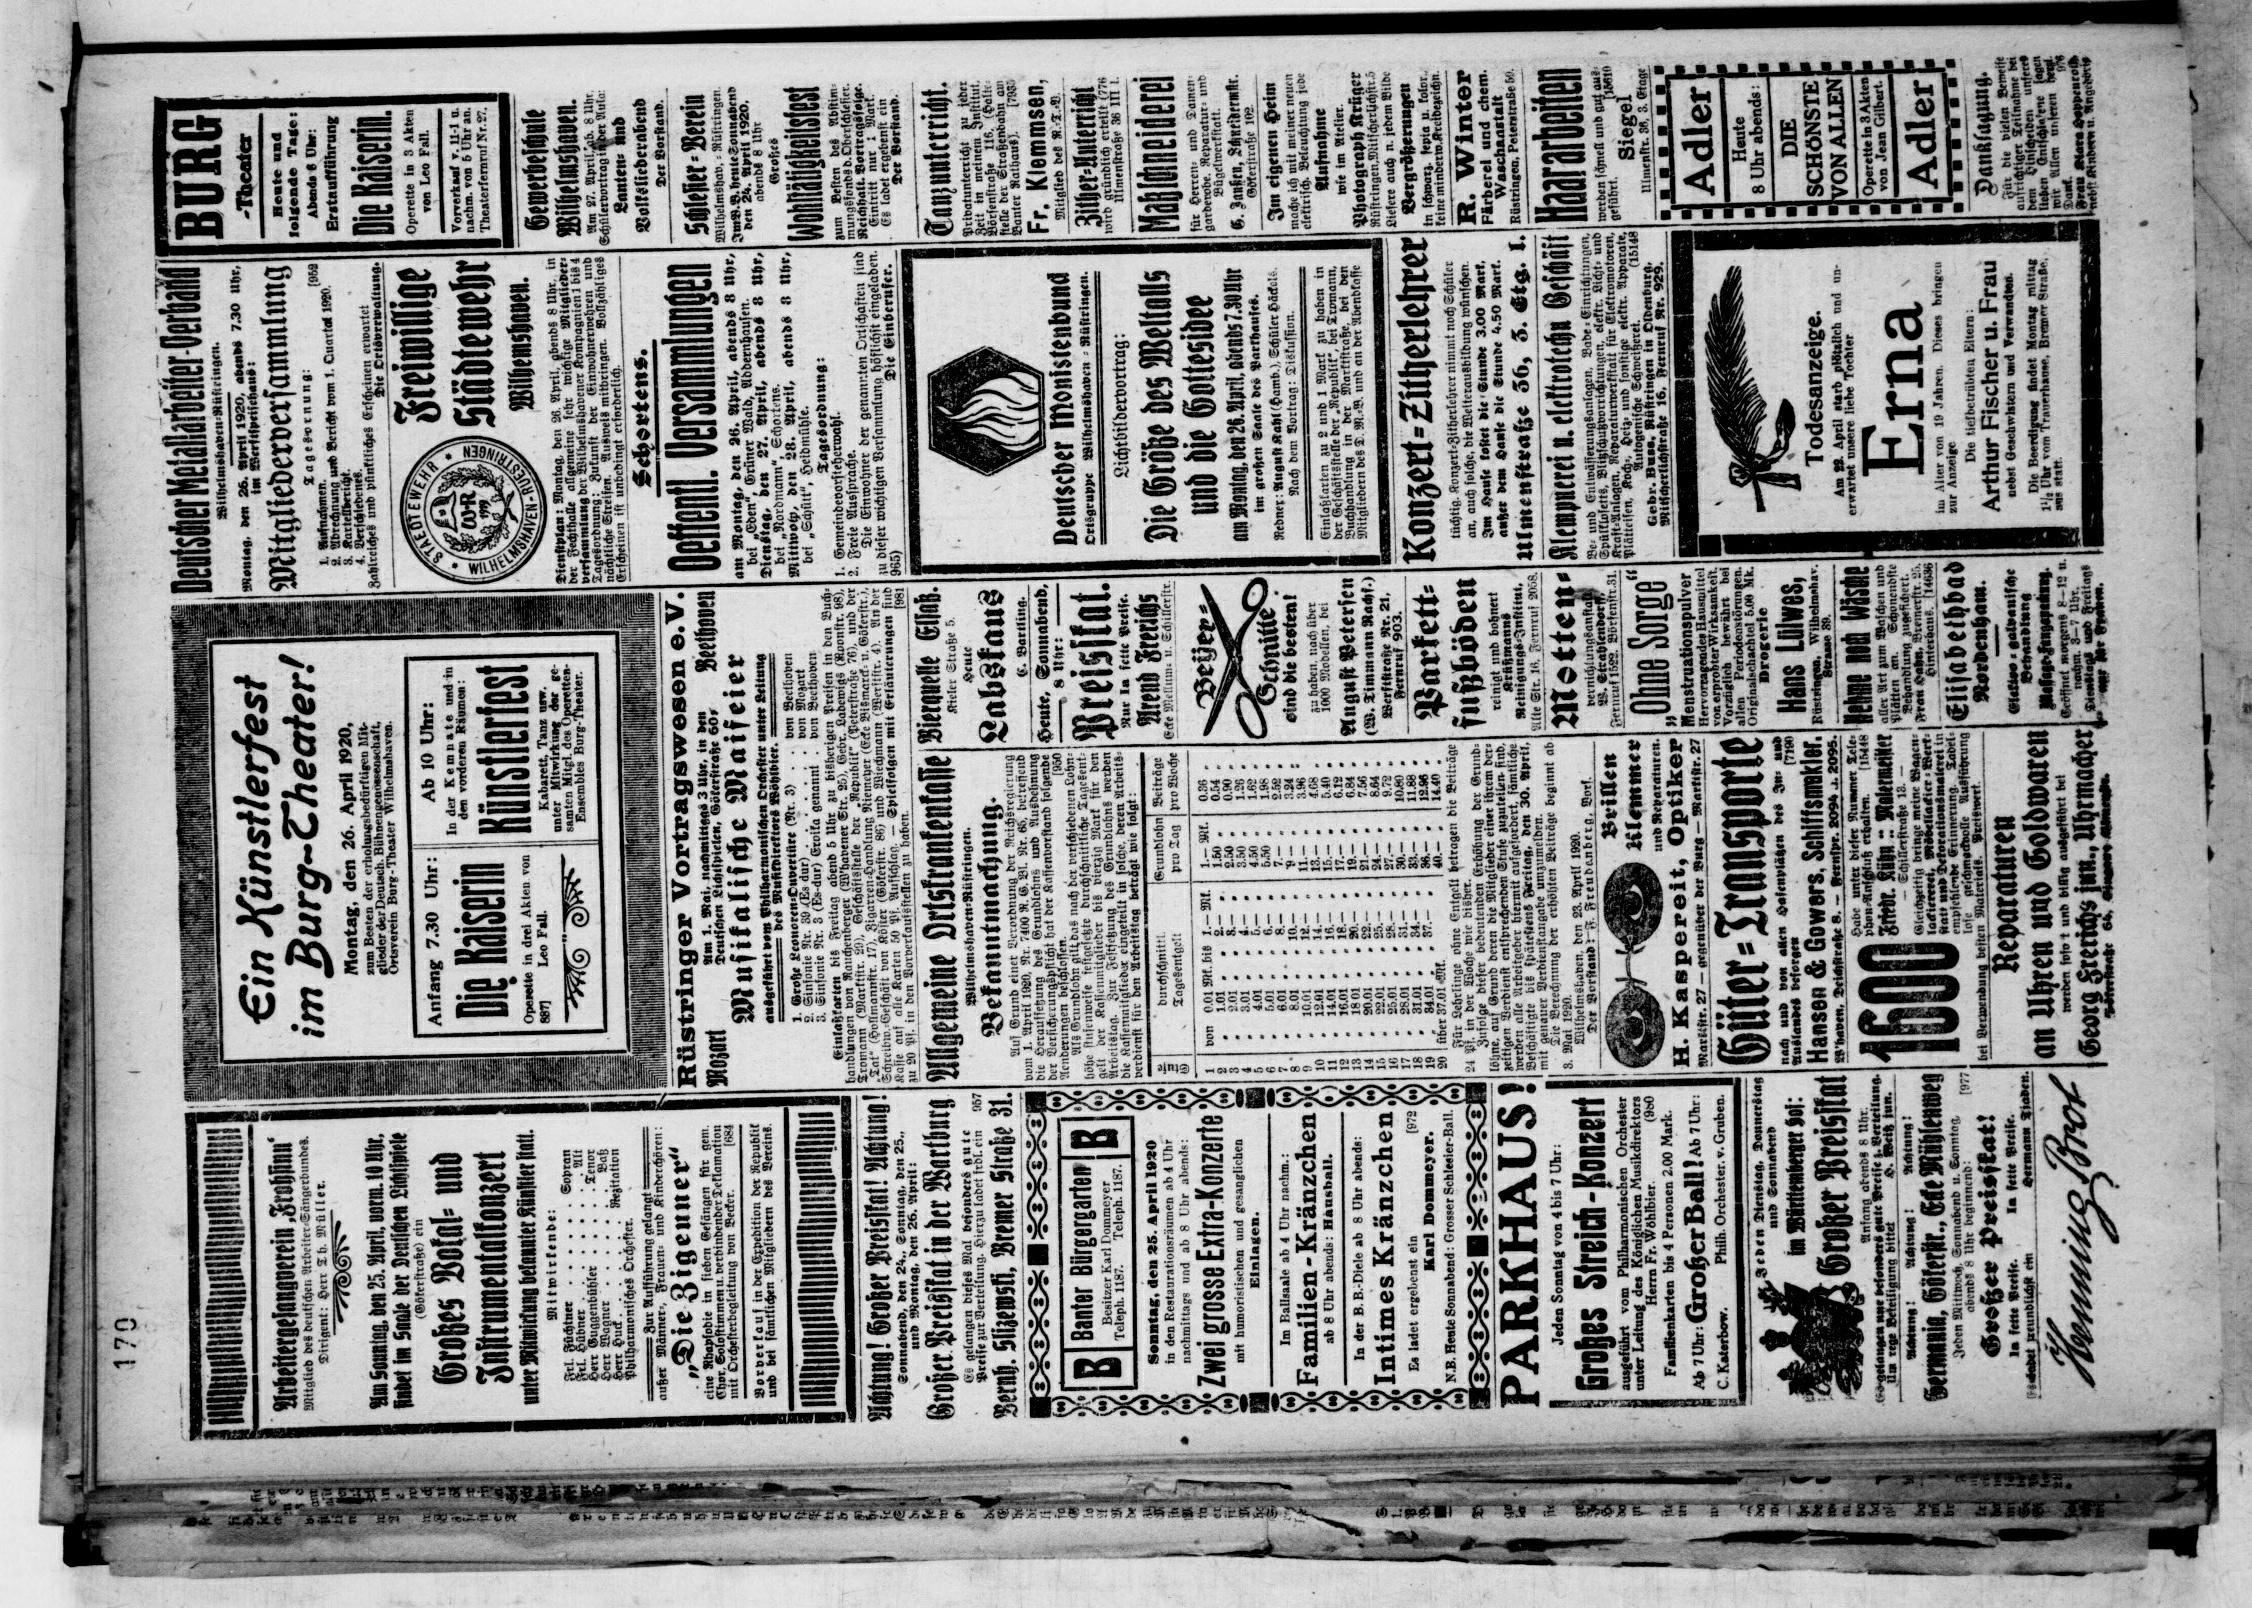 170
Arbeitergesangverein „Frohsinn“
Mitglied des deutschen Arbeiter-Sängerbundes.
Dirigent: Herr Th. Müller.
Am Sonntag, den 25. April, vorm. 10 Uhr,
findet im Saale der Deutschen Lichtspiele
(Gökerstraße) ein
Großes Vokal- und
Instrumentalkonzert
unter Mitwirkung bekannter Künstler statt.
Mitwirkende:
Frl. Füchtner . . . . . Sopran
Frl. Hübner . . . . . . Alt
Herr Guggenbühler . . . . Tenor
Herr Wagner . . . . . . Baß
Herr Huck . . . . . . Rezitation
Philharmonisches Orchester.
Zur Aufführung gelangt
außer Männer-, Frauen- und Kinderchören:
„Die Zigeuner“
eine Rhapsodie in sieben Gesängen für gem.
Chor, Solostimmen u. verbindender Deklamation
mit Orchesterbegleitung von Becker. [684
Vorverkauf in der Expedition der Republik
und bei sämtlichen Mitgliedern des Vereins.
Achtung! Großer Preisskat! Achtung!
Sonnabend, den 24., Sonntag, den 25.,
und Montag, den 26. April:
Großer Preisskat in der Wartburg
Es gelangen dieses Mal besonders gute 957
Preise zur Verteilung. Hierzu ladet frdl. ein
Bernh. Slizewski, Bremer Straße 31.
B Banter Bürgergarten B
Besitzer Karl Dommeyer
Teleph. 1187. Teleph. 1187.
Sonntag, den 25. April 1920
in den Restaurationsräumen ab 4 Uhr
nachmittags und ab 8 Uhr abends:
Zwei grosse Extra-Konzerte
mit humoristischen und gesanglichen
Einlagen.
Im Ballsaale ab 4 Uhr nachm.:
Familien-Kränzchen
ab 8 Uhr abends: Hausball.
In der B. B.-Diele ab 8 Uhr abends:
Intimes Kränzchen
Es ladet ergebenst ein [972
Karl Dommeyer.
N.B. Heute Sonnabend: Grosser Schlesier-Ball.
PARKHAUS!
Jeden Sonntag von 4 bis 7 Uhr:
Großes Streich-Konzert
ausgeführt vom Philharmonischen Orchester
unter Leitung des Königlichen Musikdirektors
Herrn Fr. Wöhlbier. (980
Familienkarten bis 4 Personen 2.00 Mark.
Ab 7 Uhr: Großer Ball! Ab 7 Uhr:
C. Katerbow. Philh. Orchester. v. Gruben.
Jeden Dienstag, Donnerstag
und Sonnabend
im Württemberger Hof:
Großer Preisskat
Anfang abends 8 Uhr.
Es gelangen nur besonders gute Preise z. Verteilung.
Um rege Beteiligung bittet H. Weiß jun.
Achtung! Achtung! Achtung!
Germania, Gökerstr., Ecke Mühlenweg
Jeden Mittwoch, Sonnabend u. Sonntag, [977
abends 8 Uhr beginnend:
Großer Preisskat!
In fette Preise. In fette Preise.
Es ladet freundlichst ein Hermann Tjaden.
Henning Brot
Ein Künstlerfest
im Burg-Theater!
Montag, den 26. April 1920,
zum Besten der erholungsbedürftigen Mit-
glieder der Deutsch. Bühnengenossenschaft,
Ortsverein Burg-Theater Wilhelmshaven.
Anfang 7.30 Uhr:
Die Kaiserin
Operette in drei Akten von
887] Leo Fall.
Ab 10 Uhr:
In der Kemnate und in
den vorderen Räumen:
Künstlerfest
Kabarett, Tanz usw.
unter Mitwirkung der ge-
samten Mitgl. des Operetten-
Ensembles Burg-Theater.
Rüstringer Vortragswesen e.V.
Mozart Am 1. Mai, nachmittags 3 Uhr, in den Beethoven
Deutschen Lichtspielen, Gökerstraße 60,
Musikalische Maifeier
ausgeführt vom Philharmonischen Orchester unter Leitung
des Musikdirektors Wöhlbier.
1. Große Leonoren-Ouvertüre (Nr. 3) . . von Beethoven
2. Sinfonie Nr. 39 (Es dur) . . . . von Mozart
3. Sinfonie Nr. 3 (Es-dur) Eroika genannt . von Beethoven
Einlaßkarten bis Freitag abend 5 Uhr zu bisherigen Preisen in den Buch-
handlungen von Rauchenberger (W'havener Str. 25), Gebr. Ladewigs (Roonstr. 98),
Tromann (Marktstr. 29), Geschäftsstelle der „Republik“ (Peterstraße 76), und der
„Tat“ (Hollmannstr. 17), Zigarren-Handlung Niemeyer (Ecke Bismarck- u. Gökerstr.),
Schreibw.-Geschäft von Köster (Gökerstr. 86) und Wiechmann (Werftstr. 4). An der
Kasse auf alle Karten 50 Pf. Aufschlag. — Spielfolgen mit Erläuterungen sind
zu 20 Pf. in den Vorverkaufsstellen zu haben. [981
Allgemeine Ortskrankenkasse
Wilhelmshaven-Rüstringen.
Bekanntmachung.
Auf Grund einer Verordnung der Reichsregierung [950
vom 1. April 1920, Nr. 7400 R. G. Bl. Nr. 65, betreffend
die Heraufsetzung des Grundlohns und Ausdehnung
der Versicherungspflicht hat der Kassenvorstand folgende
Aenderungen beschlossen.
Als Grundlohn gilt das nach der verschiedenen Lohn-
höhe stufenweise festgesetzte durchschnittliche Tagesent-
gelt der Kassenmitglieder bis vierzig Mark für den
Arbeitstag. Zur Festsetzung des Grundlohns werden
die Kassenmitglieder eingeteilt in solche, deren Arbeits-
verdienst für den Arbeitstag beträgt wie folgt:
Stufe Durchschnittl. Tagesentgelt Grundlohn pro Tag Beiträge pro Woche
1 von 0.01 Mk. bis 1.— Mk. 1.— Mk. 0.36
2 1.01 2.— 1.50 0.54
3 2.01 3.— 2.50 0.90
4 3.01 4.— 3.50 1.26
5 4.01 5.— 4.50 1.62
6 5.01 6.— 5.50 1.98
7 6.01 8.— 7.— 2.52
8 8.01 10.— 9.— 3.24
9 10.01 12.— 11.— 3.96
10 12.01 14.— 13.— 4.68
11 14.01 16.— 15.— 5.40
12 16.01 18.— 17.— 6.12
13 18.01 20.— 19.— 6.84
14 20.01 22.— 21.— 7.56
15 22.01 25.— 24.— 8.64
16 25.01 28.— 27.— 9.72
17 28.01 31.— 30.— 10.80
18 31.01 34.— 33.— 11.88
19 34.01 37.— 36.— 12.96
20 über 37.01 Mk. 40.— 14.40
Für Lehrlinge ohne Entgelt betragen die Beiträge
24 Pf. in der Woche wie bisher.
Zufolge dieser bedeutenden Erhöhung der Grund-
löhne, auf Grund deren die Mitglieder einer ihrem der-
zeitigen Verdienst entsprechenden Stufe zuzuteilen sind,
werden alle Arbeitgeber hiermit aufgefordert, sämtliche
Beschäftigte bis spätestens Freitag, den 30. April,
mit genauer Verdienstangabe umzumelden.
Die Berechnung der erhöhten Beiträge beginnt ab
3. Mai 1920.
Wilhelmshaven, den 23. April 1920.
Der Vorstand: F. Freudenberg, Vors.
Brillen
Klemmer
und Reparaturen.
H. Kaspereit, Optiker
Marktstr. 27 — gegenüber der Burg — Marktstr. 27
Güter-Transporte
nach und von allen Hafenplätzen des In- und
Auslandes besorgen [7190
Hansen & Gowers, Schiffsmakler.
W'haven, Deichstraße 8. — Fernspr. 2094 u. 2095.
1600
Habe unter dieser Nummer Tele-
phon-Anschluß erhalten. [15448
Friedr. Kühn :: Malermeister
— Schillerstraße 13 —
Gleichzeitig bringe meine Wagen-
lackiererei, Möbellackier-Werk-
statt und Dekorationsmalerei in
empfehlende Erinnerung. Tadel-
lose geschmackvolle Ausführung
bei Verwendung besten Materials. Preiswert.
Reparaturen
an Uhren und Goldwaren
werden sofort und billig ausgeführt bei
Georg Frerichs jun., Uhrmacher
Bierquelle Elsaß.
Kieler Straße 5.
Heute
Labskaus
E. Bartling.
Heute, Sonnabend,
8 Uhr:
Preisskat.
Nur Ia fette Preise.
Arend Frerichs
Ecke Mellum- u. Schillerstr.
Beyer-
Schnitte
sind die besten!
zu haben, nach über
1000 Modellen, bei
August Petersen
(W. Timmann Nachf.)
Werftstraße Nr. 21,
Fernruf 903.
Parkett-
fußböden
reinigt und bohnert
Krüßmanns
Reinigungs-Institut,
Alte Str. 16, Fernruf 2058.
Motten-
vernichtungsanstalt
W. Strahlendorff,
Fernruf 1522. Börsenstr. 31.
„Ohne Sorge“
Menstruationspulver
Hervorragendes Hausmittel
von erprobter Wirksamkeit.
Vorzüglich bewährt bei
allen Periodenstörungen.
Originalschachtel 5.00 Mk.
Drogerie
Hans Lülwes,
Rüstringen, Wilhelmshav.
Strasse 39.
Nehme noch Wäsche
aller Art zum Waschen und
Plätten an. Schonendste
Behandlung zugesichert.
Frau Hahn, Bremerstr. 25,
Hinterhaus. [14636
Elisabethbad
Nordenham.
Elektro-galvanische
Behandlung
Geöffnet morgens 8—12 u.
nachm. 3—7 Uhr.
Deutscher Metallarbeiter-Verband
Wilhelmshaven-Rüstringen.
Montag, den 26. April 1920, abends 7.30 Uhr,
im Werftspeisehaus:
Mitgliederversammlung
Tagesordnung: [952
1. Aufnahmen.
2. Abrechnung und Bericht vom 1. Quartal 1920.
3. Kartellbericht.
4. Verschiedenes.
Zahlreiches und pünktliches Erscheinen erwartet
Die Ortsverwaltung.
STAEDTEWEHR
WILHELMSHAVEN-RUESTRINGEN
W-R
1919
Freiwillige
Städtewehr
Wilhemshaven.
Dienstplan: Montag, den 26. April, abends 8 Uhr, in
der Fechthalle allgemeine sehr wichtige Mitglieder-
versammlung der Wilhelmshavener Kompagnien 1 bis 4
Tagesordnung: Zukunft der Einwohnerwehren und
nächtliche Streifen. Ausweis mitbringen. Vollzähliges
Erscheinen ist unbedingt erforderlich.
Schortens.
Oeffentl. Versammlungen
am Montag, den 26. April, abends 8 Uhr,
bei „Eden“, Grüner Wald, Addernhausen.
Dienstag, den 27. April, abends 8 Uhr,
bei „Nordmann“, Schortens.
Mittwoch, den 28. April, abends 8 Uhr,
bei „Schütt“, Heidmühle.
Tagesordnung:
1. Gemeindevorsteherwahl.
2. Freie Aussprache.
Die Einwohner der genannten Ortschaften sind
zu dieser wichtigen Versammlung höflichst eingeladen.
965) Die Einberufer.
Deutscher Monistenbund
Ortsgruppe Wilhelmshaven-Rüstringen.
Lichtbildervortrag:
Die Größe des Weltalls
und die Gottesidee
am Montag, den 26. April, abends 7.30 Uhr
im großen Saale des Parkhauses.
Redner: August Kahl (Hamb.), Schüler Häckels.
Nach dem Vortrag: Diskussion.
Einlaßkarten zu 2 und 1 Mark zu haben in
der Geschäftsstelle der „Republik“, bei Tromann,
Buchhandlung in der Marktstraße, bei den
Mitgliedern des D. M.-B. und an der Abendkasse
Konzert-Zitherlehrer
tüchtig. Konzert-Zitherlehrer nimmt noch Schüler
an, auch solche, die Weiterausbildung wünschen.
Im Hause kostet die Stunde 3.00 Mark,
außer dem Hause die Stunde 4.50 Mark.
Ulmenstraße 36, 3. Etg. l.
Klempnerei u. elektrotechn. Geschäft
Be- und Entwässerungsanlagen, Bade-Einrichtungen,
Spülklosetts, Blitzschutzvorrichtungen, elektr. Licht- und
Kraft-Anlagen, Reparaturwerkstatt für Elektromotoren,
Plätteisen, Koch-, Heiz- und sonstige elektr. Apparate,
Autogenische Schweißerei. (15148
Gebr. Buss, Rüstringen in Oldenburg,
Mitscherlichstraße 16. Fernruf Nr. 929.
Todesanzeige.
Am 22. April starb plötzlich und un-
erwartet unsere liebe Tochter
Erna
im Alter von 19 Jahren. Dieses bringen
zur Anzeige
Die tiefbetrübten Eltern:
Arthur Fischer u. Frau
nebst Geschwistern und Verwandten.
Die Beerdigung findet Montag mittag
1½ Uhr vom Trauerhause, Bremer Straße,
aus statt.
BURG
-Theater
Heute und
folgende Tage:
Abends 8 Uhr:
Erstaufführung
Die Kaiserin.
Operette in 3 Akten
von Leo Fall.
Vorverkauf v. 11-1 u.
nachm. von 5 Uhr an.
Theaterfernruf Nr. 27.
Gewerbeschule
Wilhelmshaven.
Am 27. April, ab. 8 Uhr,
Schlierbortrag in der Aula:
Lauten- und
Volksliederabend
Der Vorstand.
Schlesier-Verein
Wilhelmshav.-Rüstringen.
Im B.B. heute Sonnabend
den 24. April 1920,
abends 8 Uhr
Großes
Wohltätigkeitsfest
zum Besten des Abstim-
mungsfonds d. Oberschlesier.
Reichhalt. Vortragsfolge.
Eintritt nur 1 Mark.
Es ladet ergebenst ein
Der Vorstand.
Tanzunterricht.
Privatunterricht zu jeder
Zeit in meinem Institut,
Börsenstraße 116, (Halte-
stelle der Straßenbahn am
Banter Rathaus). [7935
Fr. Klemmsen,
Mitglied des R. T.-V.
Zither-Unterricht
wird gründlich erteilt (776
Ulmenstraße 36 III l.
Maßschneiderei
für Herren- und Damen-
garderobe. Reparatur- und
Bügelwerkstatt.
G. Janßen, Schneidermstr.
Gökerstraße 102.
Im eigenen Heim
mache ich mit meiner neuen
elektrisch. Beleuchtung jede
Aufnahme
wie im Atelier.
Photograph Krüger
Rüstringen, Mitscherlichstr. 5
Liefere auch n. jedem Bilde
Vergrößerungen
in schwarz, sepia u. kolor.,
keine minderw. Kreidezeichn.
R. Winter
Färberei und chem.
Waschanstalt
Rüstringen, Peterstraße 59.
Haararbeiten
werden schnell und gut aus-
geführt. [15610
Siegel
Ulmenstr. 36, 3. Etage
Adler
Heute
8 Uhr abends:
DIE
SCHÖNSTE
VON ALLEN
Operette in 3 Akten
von Jean Gilbert.
Adler
Danksagung.
Für die vielen Beweise
aufrichtiger Teilnahme bei
dem Hinscheiden unseres
lieben Entschlafenen sagen
wir Allen unseren herzl.
Dank. 976